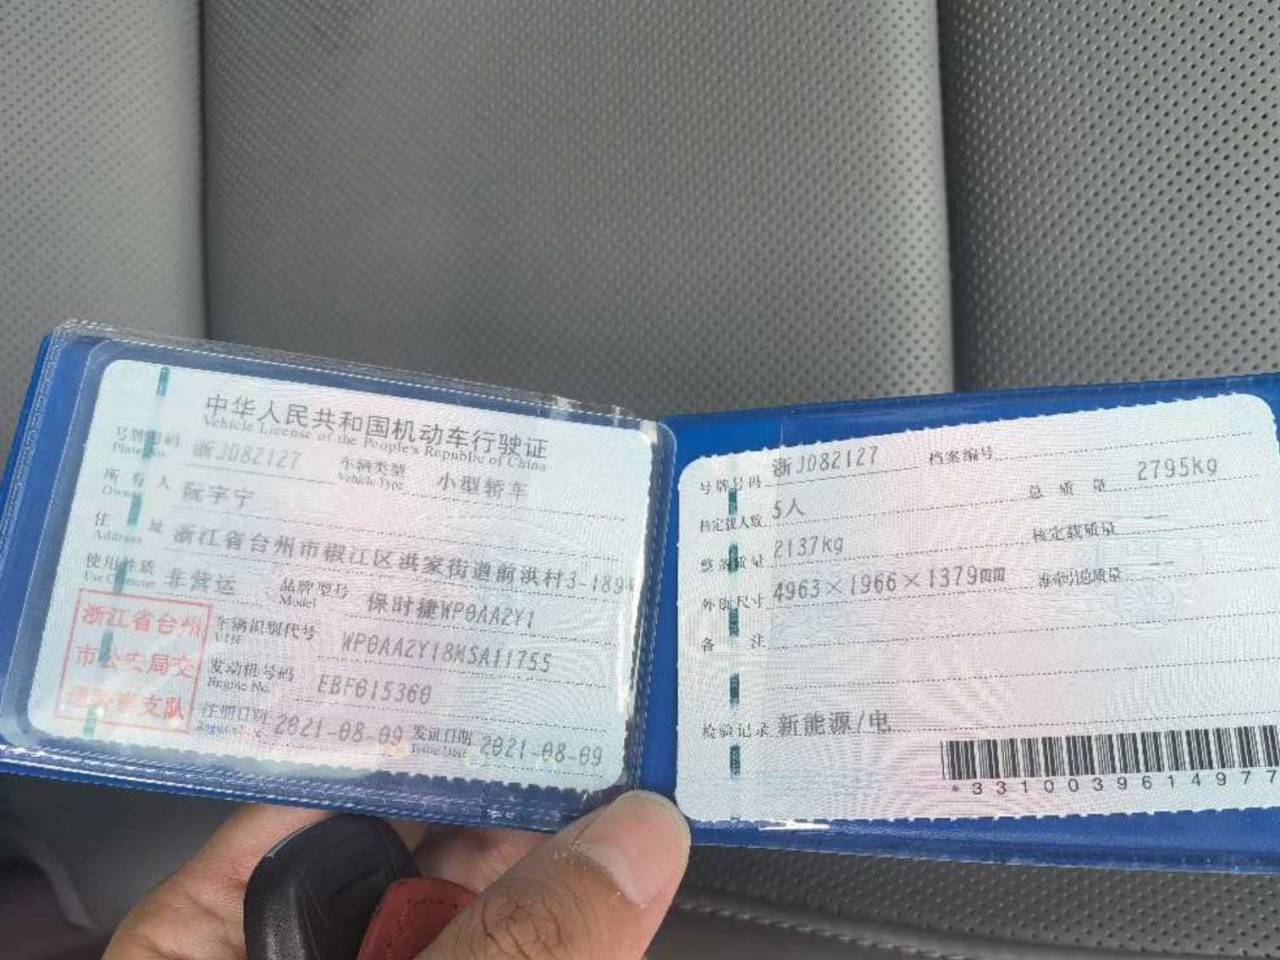 中华人民共和国机动车行驶证
Vehicle License of the People's Republic of China
号牌号码 浙JD82127 车辆类型 小型轿车
Plate No. Vehicle Type
所有人 阮宇宁
Owner
住址 浙江省台州市椒江区洪家街道前洪村3-189
Address
使用性质 非营运 品牌型号 保时捷WP0AA2Y1
Use Character Model
浙江省台州
市公安局交
通警察支队
车辆识别代号 WP0AA2Y18MSA11755
VIN
发动机号码 EBF615360
Engine No.
注册日期 2021-08-09 发证日期 2021-08-09
Issue Date
号牌号码 浙JD82127 档案编号
核定载人数 5人 总质量 2795kg
整备质量 2137kg 核定载质量 --
外廓尺寸 4963×1966×1379mm 准牵引总质量 --
备注
检验记录 新能源/电
*3310039614977